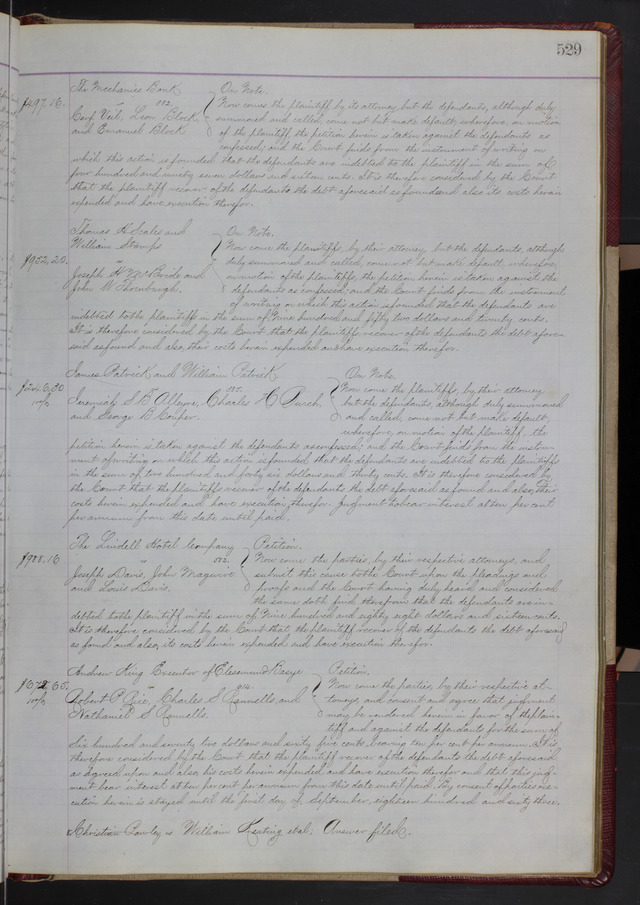 529
The Mechanics Bank On Note.
$497.16. vs 882. Now comes the plaintiff by its attorney but the defendants, although duly
Conf Veit, Leon Block, summoned and called, come not but make default; wherefore, on motion
and Emanuel Block of the plaintiff, the petition herein is taken against the defendants as
confessed; and the Court finds from the instrument of writing on
which this action is founded that the defendants are indebted to the plaintiff in the sum of
four hundred and ninety seven dollars and sixteen cents. It is therefore considered by the Court
that the plaintiff recover of the defendants the debt aforesaid as found and also its costs herein
expended and have execution therefor.
Thomas H Scales and On Note.
William Stamps Now come the plaintiffs, by their attorney but the defendants although
$952.20. vs duly summoned and called, come not but make default, wherefore,
Joseph H McBride and on motion of the plaintiffs, the petition herein is taken against the
John W Thornburgh. defendants as confessed; and the Court finds from the instrument
of writing on which this action is founded that the defendants are
indebted to the plaintiffs in the sum of Nine hundred and fifty two dollars and twenty cents.
It is therefore considered by the Court that the plaintiffs recover of the defendants the debt afore-
said as found and also, their costs herein expended and have execution therefor.
James Patrick and William Patrick On Note.
$246.30 vs Now come the plaintiffs, by their attorney
10 % Jeremiah S. B. Alleyne, Charles H Burch, but the defendants although duly summoned
and George B Cowper. and called, come not but made default,
wherefore, on motion of the plaintiff, the
petition herein is taken against the defendants as confessed; and the Court finds from the instru-
ment of writing on which this action is founded that the defendants are indebted to the plaintiffs
in the sum of two hundred and forty six dollars and thirty cents. It is therefore considered by
the Court that the plaintiffs recover of the defendants the debt aforesaid as found and also, their
costs herein expended and have execution, therefor. Judgment to bear interest at ten per cent
per annum from this date until paid.
The Lindell Hotel Company Petition.
$988.16 vs 882. Now come the parties, by their respective attorneys, and
Joseph Davis, John Maguire submit this cause to the Court upon the pleadings and
and Louis Davis. proofs and the Court having duly heard and considered
the same doth find therefrom that the defendants are in-
debted to the plaintiff in the sum of Nine hundred and eighty eight dollars and sixteen cents.
It is therefore considered by the Court that the plaintiff recover of the defendants the debt aforesaid
as found and also, its costs herein expended and have execution therefor.
Andrew King Executor of Elesmund Basye Petition,
$672.65. vs 914. Now come the parties, by their respective at-
10 % Robert P Rice, Charles S Rannells, and torneys, and consent and agree that judgment
Nathaniel S Rannells. may be rendered herein in favor of the plain-
tiff and against the defendants for the sum of
Six hundred and seventy two dollars and sixty five cents, bearing ten per cent per annum. It is
therefore considered by the Court that the plaintiff recover of the defendants the debt aforesaid
as agreed upon and also his costs herein expended, and have execution therefor and that this judg-
ment bear interest at ten per cent per annum from this date until paid. By consent of parties exe-
cution herein is stayed until the first day of September, eighteen hundred and sixty three.
Christian Pawley vs William Keating et al. Answer filed.